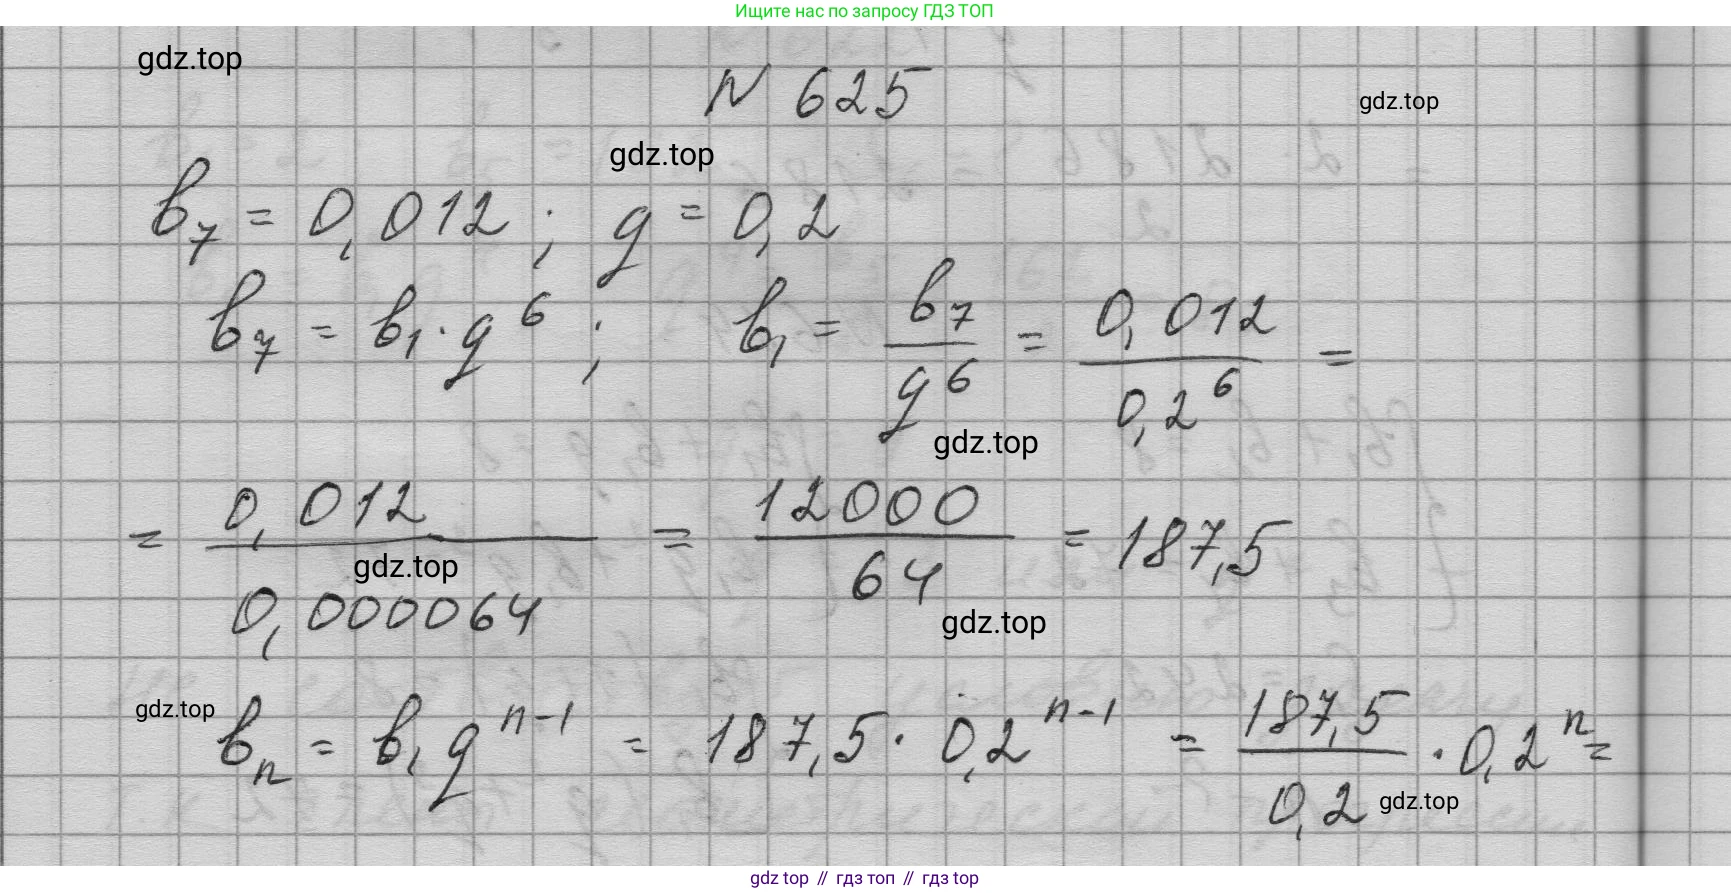 Ищите нас по запросу ГДЗ ТОП
gdz.top
N 625
gdz.top
gdz.top
b₇ = 0,012 ; q = 0,2
b₇ = b₁ · q⁶ ; b₁ = b₇/q⁶ = 0,012/0,2⁶ =
gdz.top
= 0,012/0,000064 = 12000/64 = 187,5
gdz.top
gdz.top
gdz.top
bₙ = b₁qⁿ⁻¹ = 187,5 · 0,2ⁿ⁻¹ = 187,5/0,2 · 0,2ⁿ =
gdz.top
gdz top // гдз топ // гдз top